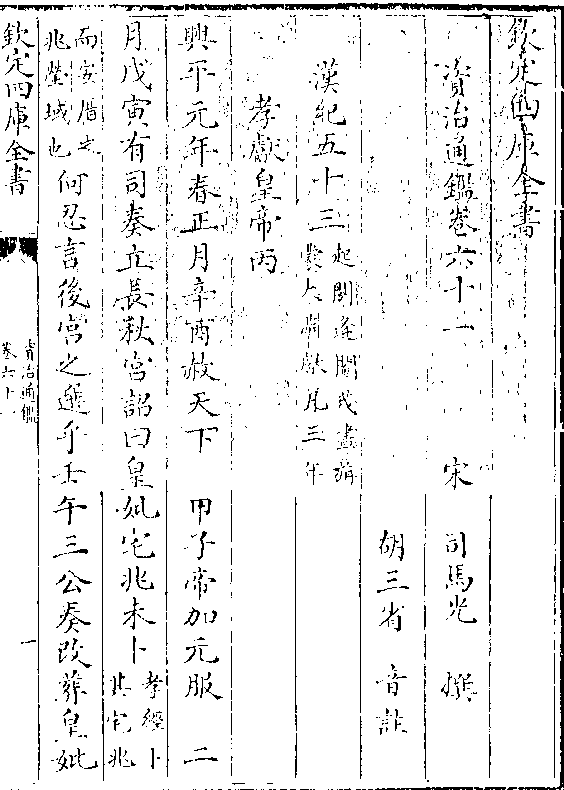 欽定四庫全書
資治通鑑卷六十一
宋 司馬光 撰
胡三省 音註
漢紀五十三起閼逢閹茂盡旃蒙大淵獻凡三年
孝獻皇帝丙
興平元年春正月辛酉赦天下 甲子帝加元服 二
月戊寅有司奏立長秋宮詔曰皇妣宅兆未卜孝經卜其宅兆
而安厝之兆塋域也何忍言後宮之選乎壬午三公奏改葬皇妣
欽定四庫全書
資治通鑑
卷六十一
一